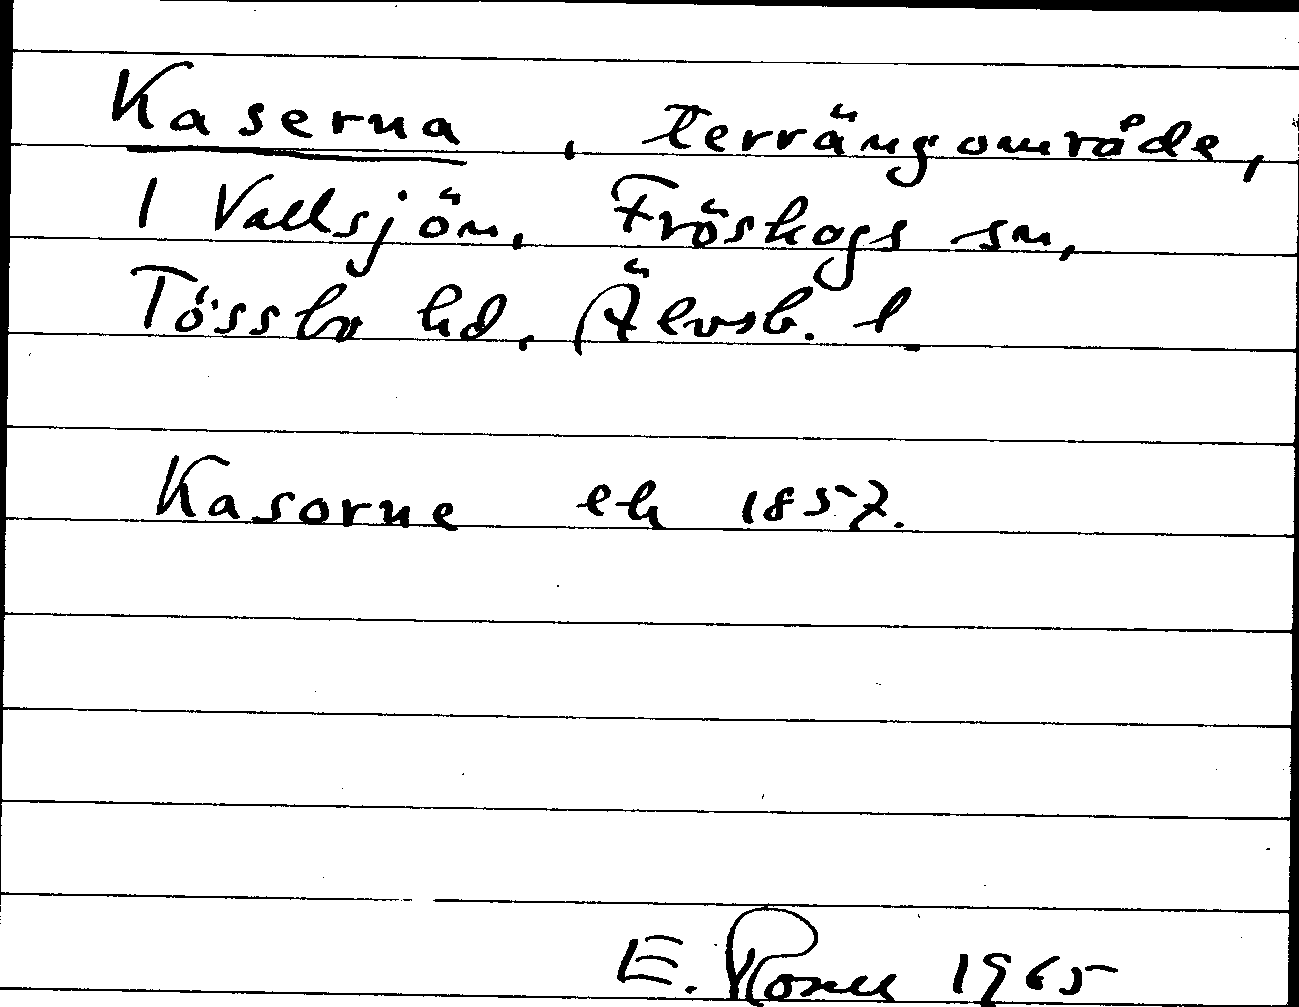 Kaserna, terrängområde,
1 Vallsjön, Fröskogs sn,
Tössbo hd, Älvsb. l.
Kasorne ek 1857.
E. Rosell 1965